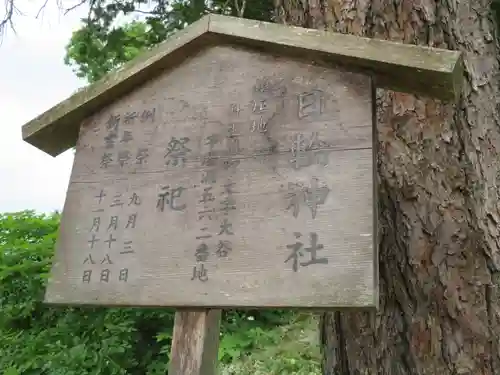 日輪神社
鎮座地
字大谷
五六二番地
祭祀
例祭 九月三日
祈年祭 三月十八日
新嘗祭 十一月十八日